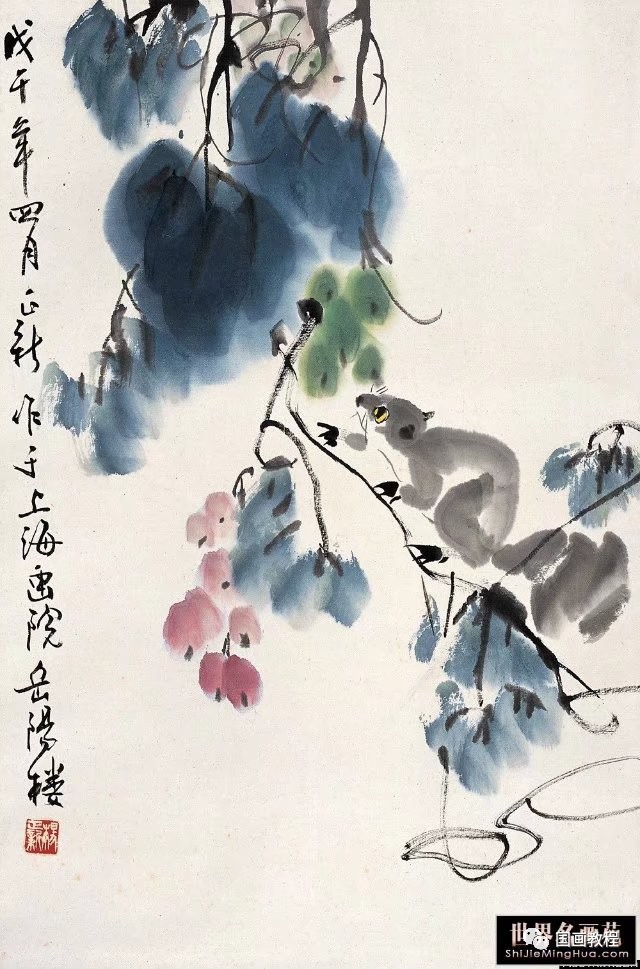 戊午年四月正新作于上海画院岳陽楼
国画教程
ShiJieMingHua.com